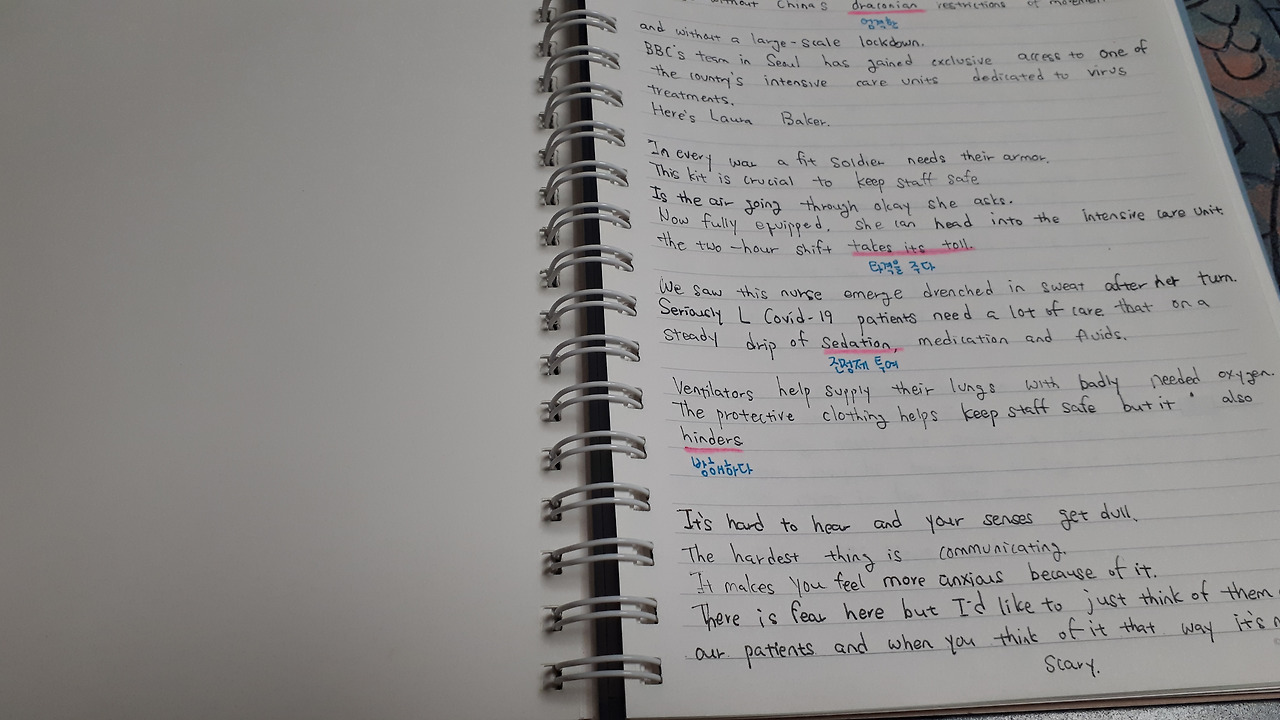 without China's draconian restrictions of
엄격한
and without a large-scale lockdown.
BBC's team in Seoul has gained exclusive access to one of
the country's intensive care units dedicated to virus
treatments.
Here's Laura Baker.
In every war a fit soldier needs their armor.
This kit is crucial to keep staff safe
Is the air going through okay she asks.
Now fully equipped, she can head into the intensive care unit
the two-hour shift takes its toll.
타격을 주다
We saw this nurse emerge drenched in sweat after her turn.
Seriously L Covid-19 patients need a lot of care that on a
steady drip of sedation, medication and fluids.
진정제 투여
Ventilators help supply their lungs with badly needed oxygen.
The protective clothing helps keep staff safe but it also
hinders
방해하다
It's hard to hear and your senses get dull.
The hardest thing is communicating.
It makes you feel more anxious because of it.
There is fear here but I'd like to just think of them
our patients and when you think of it that way it's
scary.